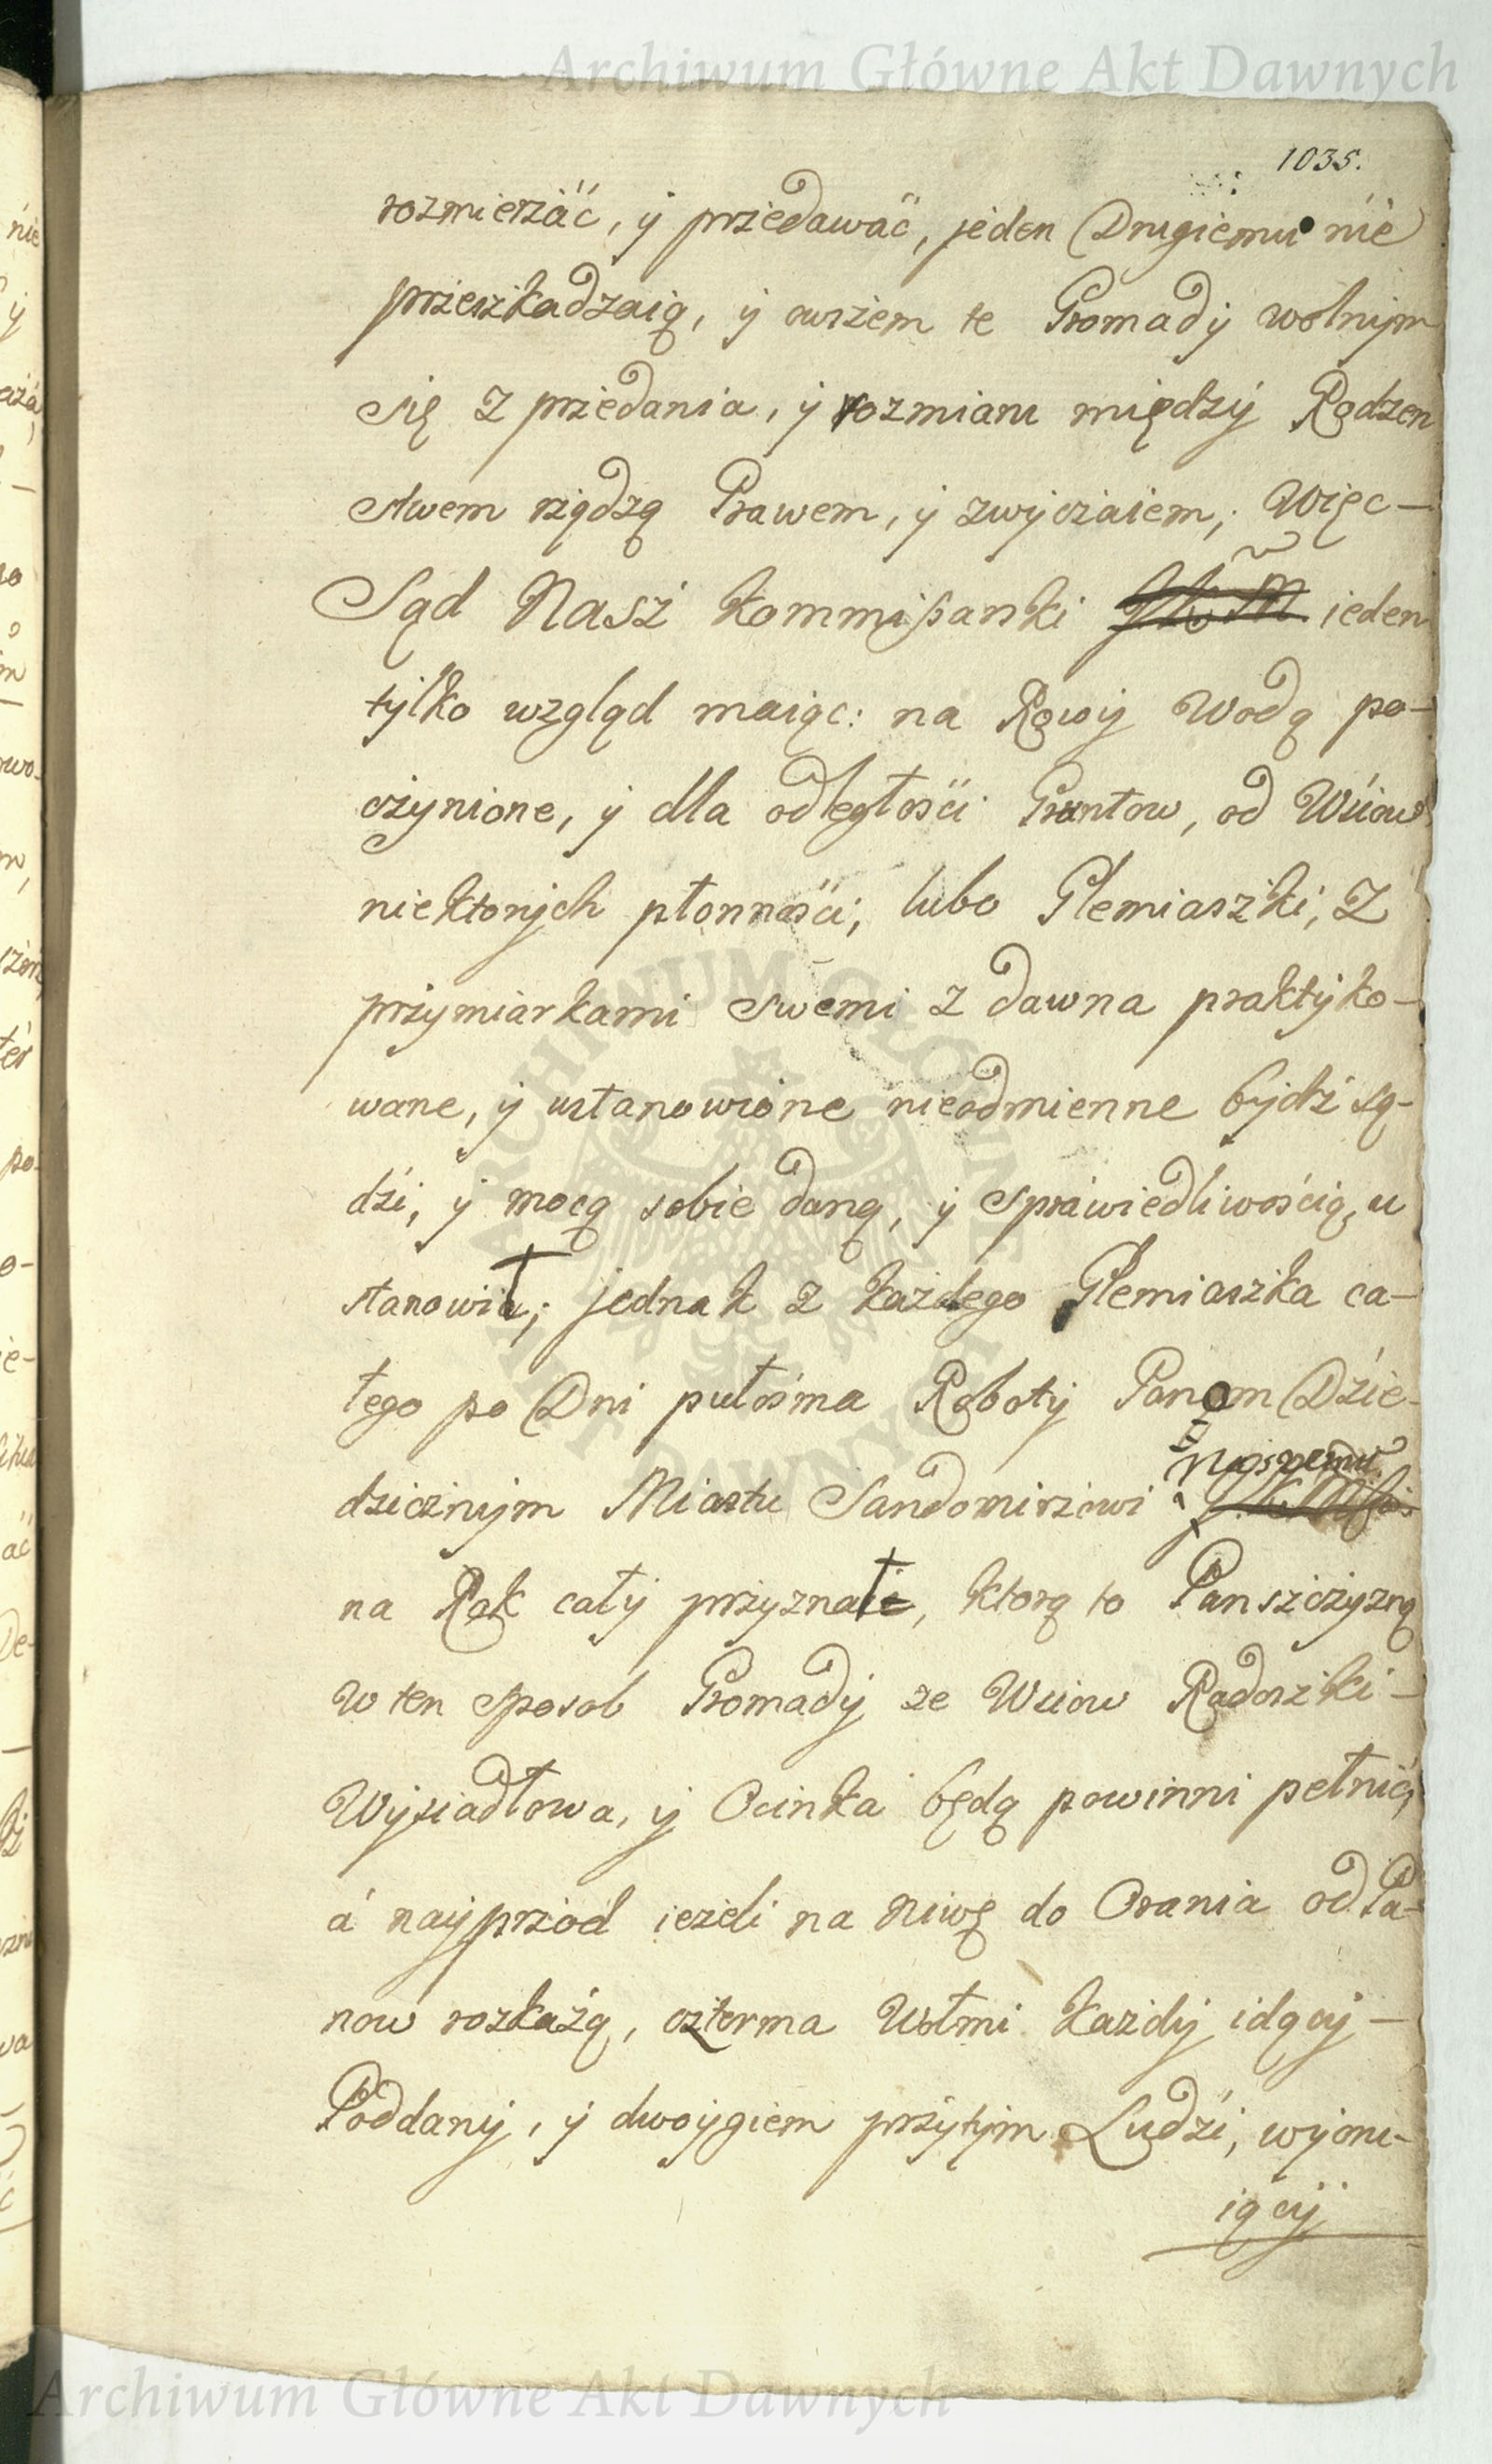 Archiwum Główne Akt Dawnych
1035.
rozmierżać, ÿ przedawać, jeden Drugiemu nie
przeszkadzaią, ÿ owszem te Gromadÿ wolnÿm
się z przedania, ÿ rozmianu międzÿ Rodzen
stwem rządzą Prawem, ÿ zwÿczaiem; Więc —
Sąd Nasż Kommißarski ieden
tÿlko wzgląd maiąc: na Rowÿ Wodą po-
czynione, ÿ dla odległości Gruntow, od Wsiow
niektorÿch płonności; lubo Płemiaszki, Z
przymiarkami swemi z dawna praktÿko-
wane, ÿ ustanowione nieodmienne bÿdź są-
dzi, ÿ mocą sobie daną, ÿ sprawiedliwością, u
stanowił; jednak z każdego Płemiaszka ca-
łego po Dni pułosma Robotÿ Panom Dzie-
Naszemu
dzicznÿm Miastu Sandomirzowi
na Rok całÿ przyznałe, ktorą to Panszczyznę
w ten sposob Gromadÿ ze Wsiow Radoszki —
Wÿsiadłowa, ÿ Ocinka będą powinni pełnić,
á nayprzod ieżeli na Niwę do Orania od Pa-
now rozkażą, czterma Wołmi każdÿ idącÿ —
Poddanÿ, ÿ dwoygiem przÿtÿm Ludźi, wÿimu-
iącÿ
ARCHIWUM GŁÓWNE AKT DAWNYCH
Archiwum Główne Akt Dawnych